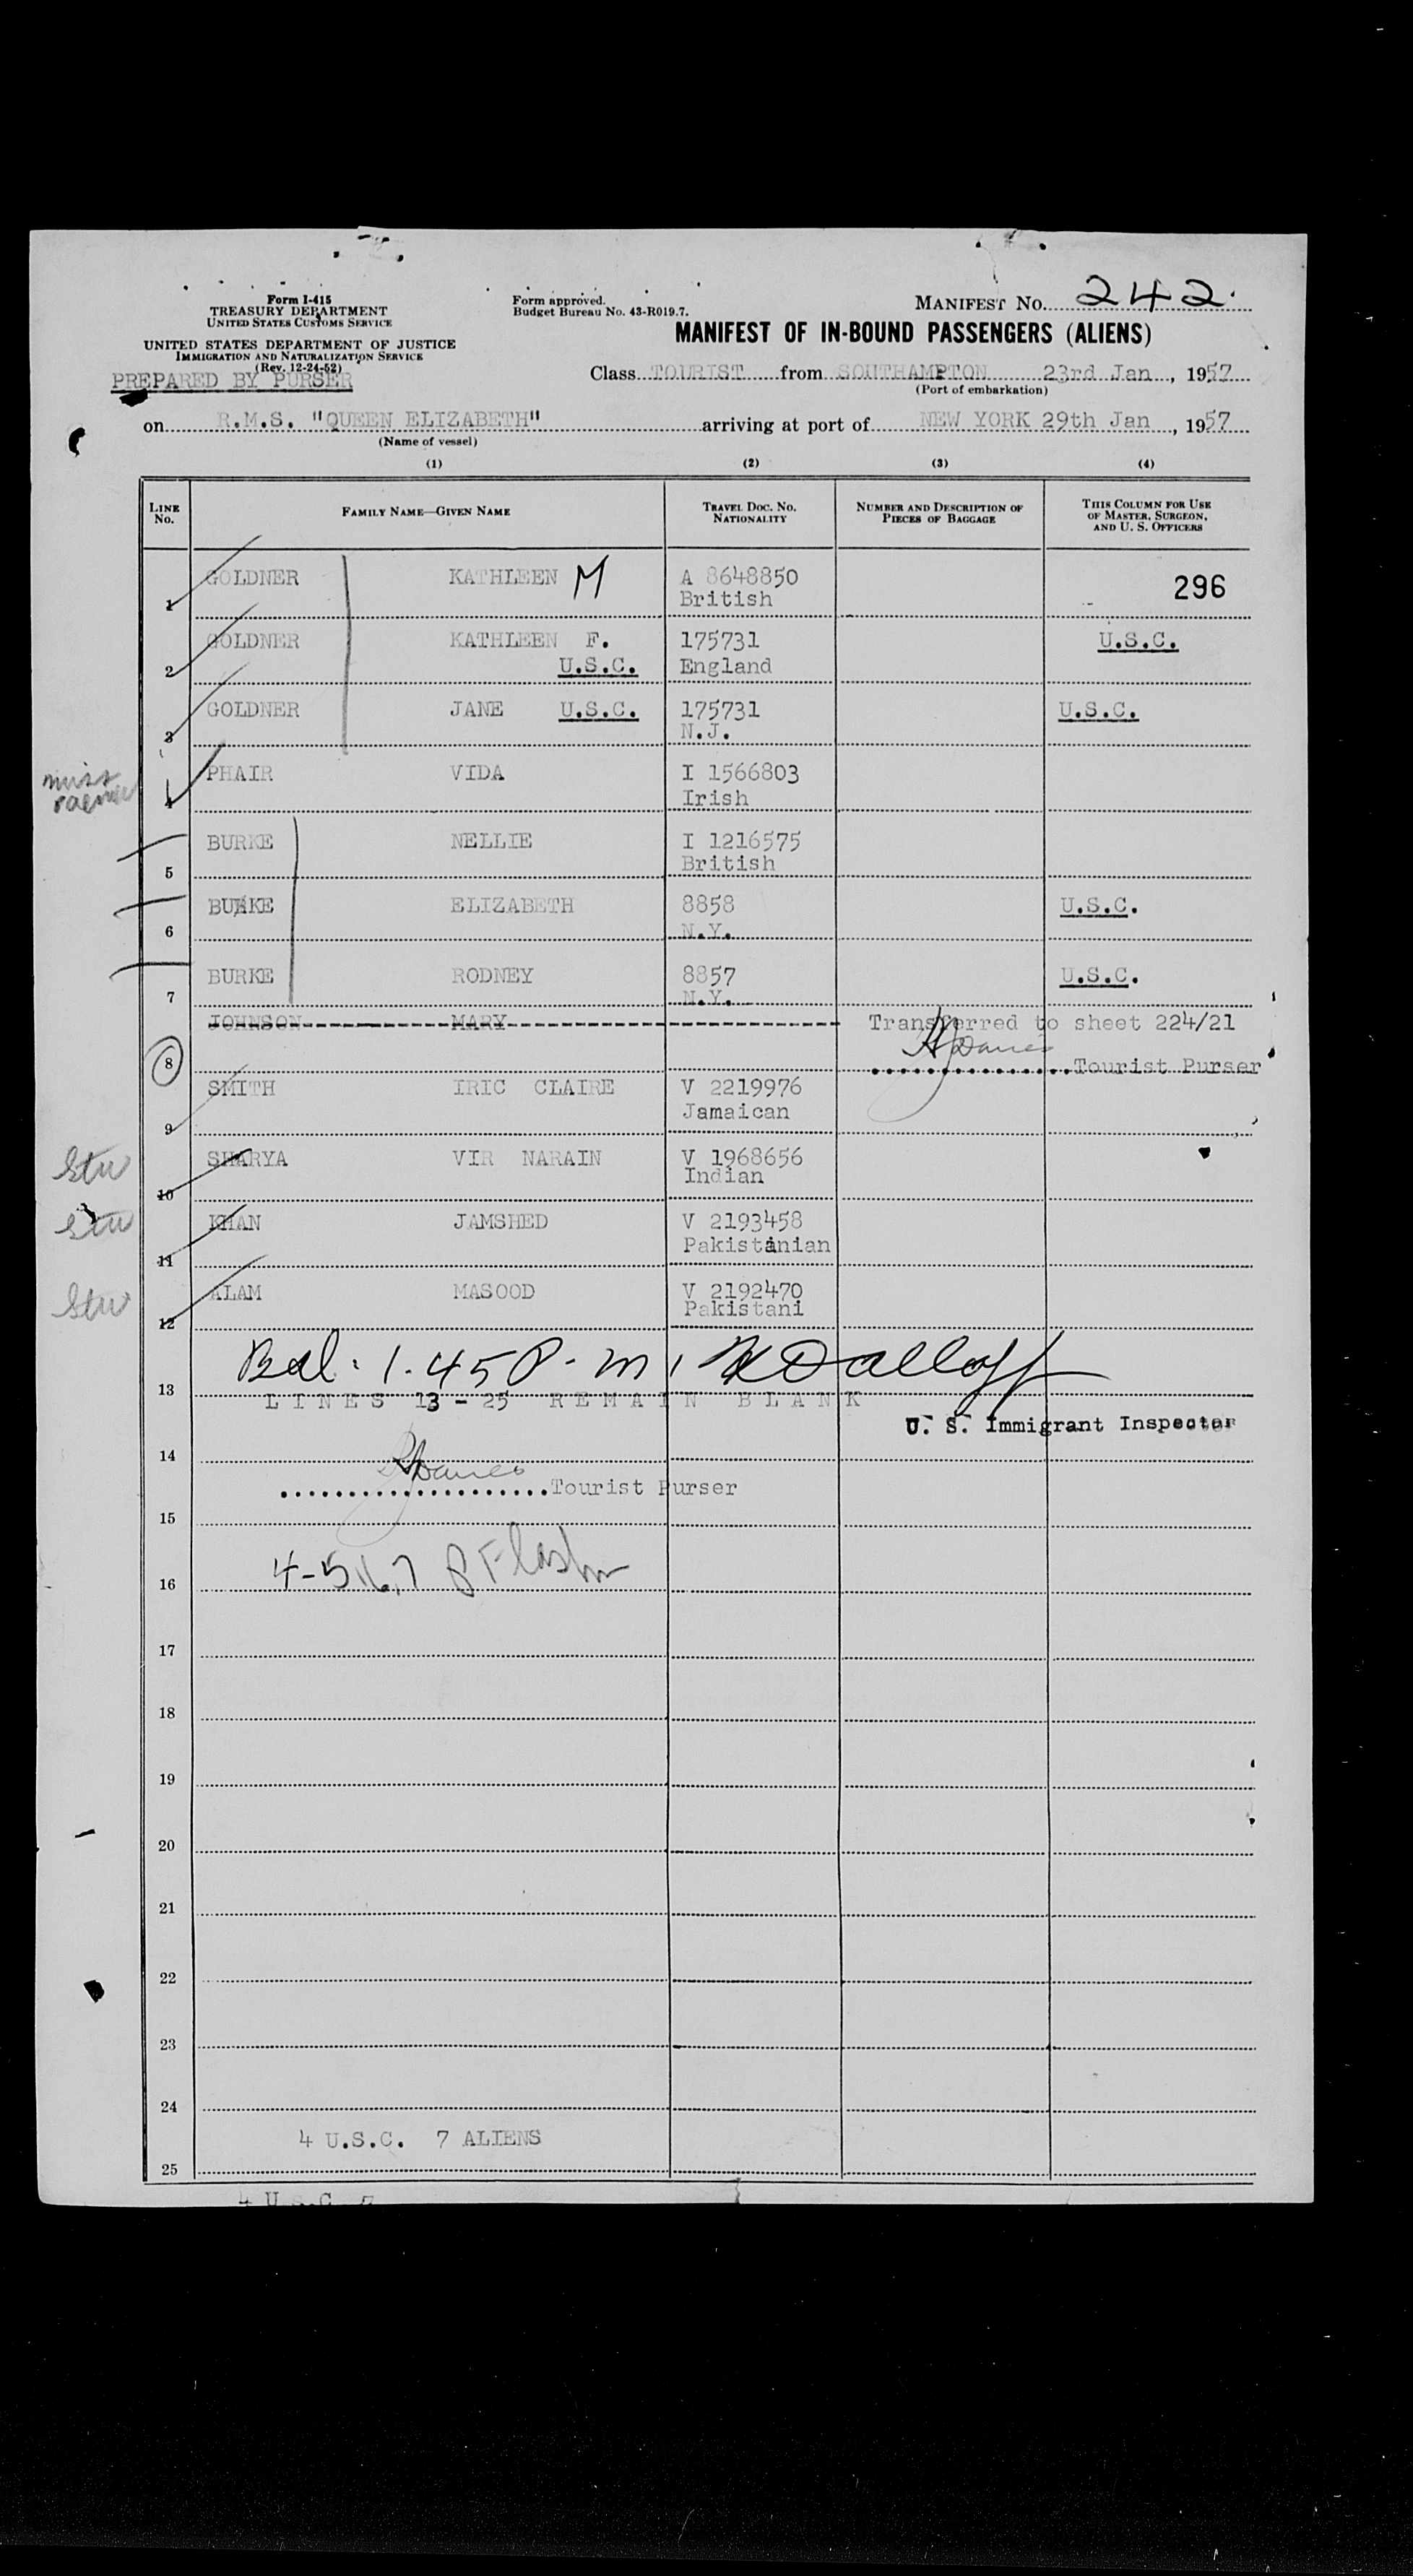 Form I-415
TREASURY DEPARTMENT
UNITED STATES CUSTOMS SERVICE
UNITED STATES DEPARTMENT OF JUSTICE
IMMIGRATION AND NATURALIZATION SERVICE
(Rev. 12-24-52)
PREPARED BY PURSER
Form approved.
Budget Bureau No. 43-R019.7.
MANIFEST No. 242.
MANIFEST OF IN-BOUND PASSENGERS (ALIENS)
Class TOURIST from SOUTHAMPTON 23rd Jan , 1957
(Port of embarkation)
on R.M.S. "QUEEN ELIZABETH" arriving at port of NEW YORK 29th Jan , 1957
(Name of vessel)
(1) (2) (3) (4)
LINE No. FAMILY NAME—GIVEN NAME TRAVEL DOC. No. NATIONALITY NUMBER AND DESCRIPTION OF PIECES OF BAGGAGE THIS COLUMN FOR USE OF MASTER, SURGEON, AND U. S. OFFICERS
1 GOLDNER KATHLEEN M A 8648850 296
British
2 GOLDNER KATHLEEN F. 175731 U.S.C.
U.S.C. England
3 GOLDNER JANE U.S.C. 175731 U.S.C.
N.J.
miss
4 PHAIR VIDA I 1566803
Irish
5 BURKE NELLIE I 1216575
British
6 BURKE ELIZABETH 8858 U.S.C.
N.Y.
7 BURKE RODNEY 8857 U.S.C.
N.Y.
8 JOHNSON MARY Transferred to sheet 224/21
Tourist Purser
9 SMITH IRIC CLAIRE V 2219976
Jamaican
Stu 10 SHARYA VIR NARAIN V 1968656
Indian
Stu 11 KHAN JAMSHED V 2193458
Pakistanian
Stu 12 ALAM MASOOD V 2192470
Pakistani
13 Bal. 1.45 P.m.
LINES 13 - 25 REMAIN BLANK
U. S. Immigrant Inspector
14
Tourist Purser
15
16 4-5,6,7
17
18
19
20
21
22
23
24
4 U.S.C. 7 ALIENS
25
4 U.S.C. 7